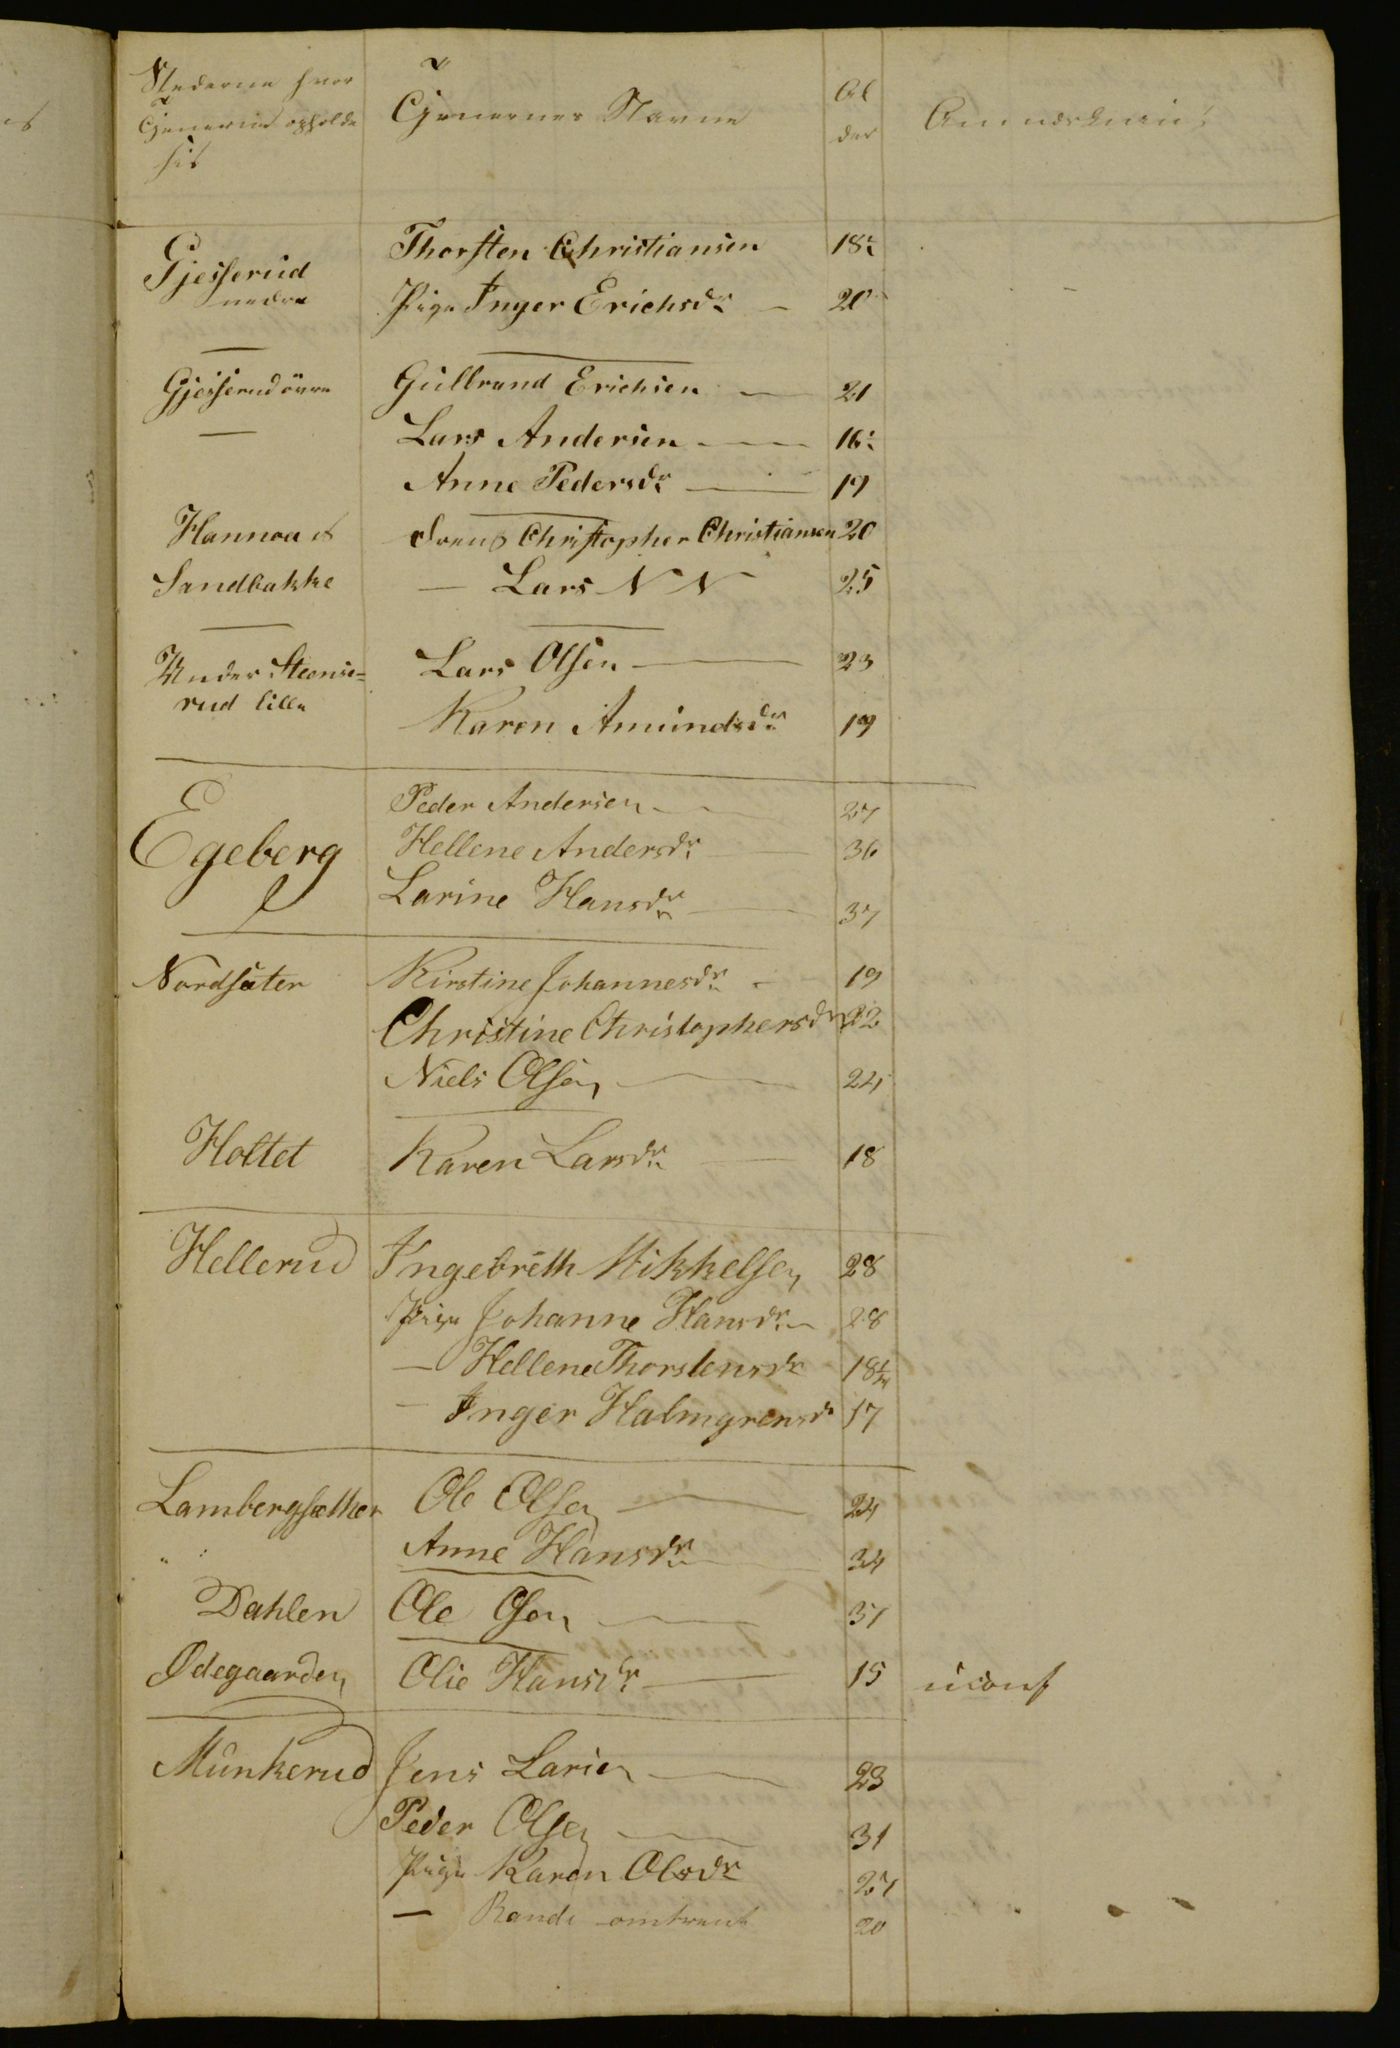 Stederne hvor
Tjenerne opholde
sig
Tjenernes Navne
Al
der
Anmærkning
Gjesserud
nedre
Thorsten Christiansen 18½
Pige Inger Erichsdr. — 20
Gjesserud övre
Gulbrand Erichsen — 21
— Lars Andersen — 16½
Anne Pedersdr. — 19
Hannoa &
Sandbakke
dreng Christopher Christiansen 20
— Lars N N 25
Under Steens=
rud lille
Lars Olsen — 23
Karen Amundsdr. 19
Egeberg
Peder Andersen — 27
Hellene Andersdr. — 36
Larine Hansdr. — 37
Nordsæter Kirstine Johannesdr. — 19
Christine Christophersdr. 22
Niels Olsen — 24
Holtet Karen Larsdr. — 18
Hellerud Ingebreth Mikkelsen 28
Pige Johanne Hansdr. — 28
— Hellene Thorstensdr. 18½
— Inger Halmgrensdr. 17
Lambergsæther Ole Olsen — 24
" Anne Hansdr. — 34
Dahlen Ole Osen — 37
Ødegaarden Olie Hansdr. — 15 uconf
Munkerud Jens Larsen — 23
Peder Olsen — 31
Pige Karen Olsdr. 27
— Randi omtrent 20